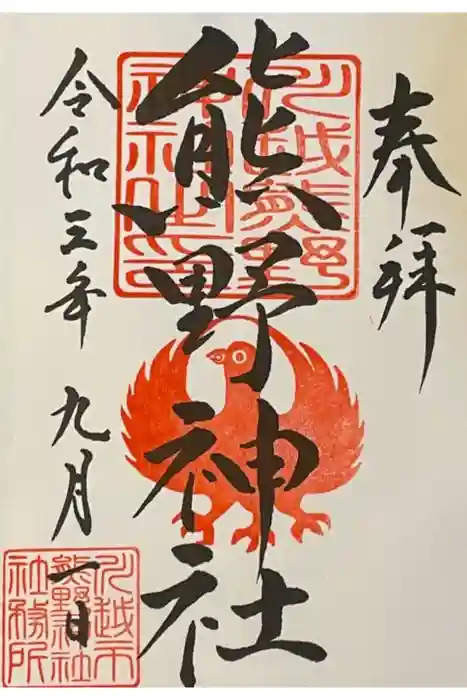 奉拝
川越熊野
神社之印
熊野神社
令和三年九月一日
川越市
熊野神社
社務所